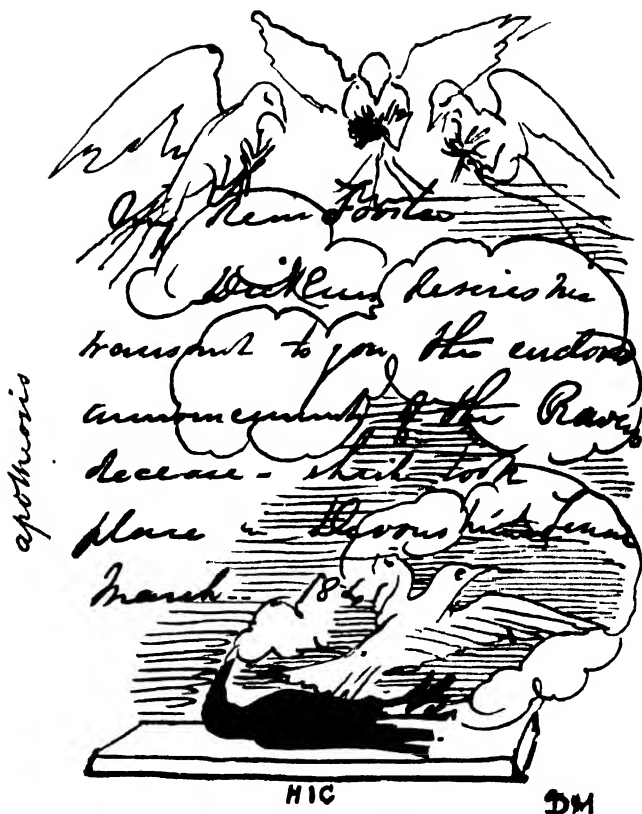 My dear Forster
Dickens desires me
transmit to you the enclosed
announcement of the Raven's
decease - which took
place in Devonshire Terrace
March
apotheosis
HIC
DM